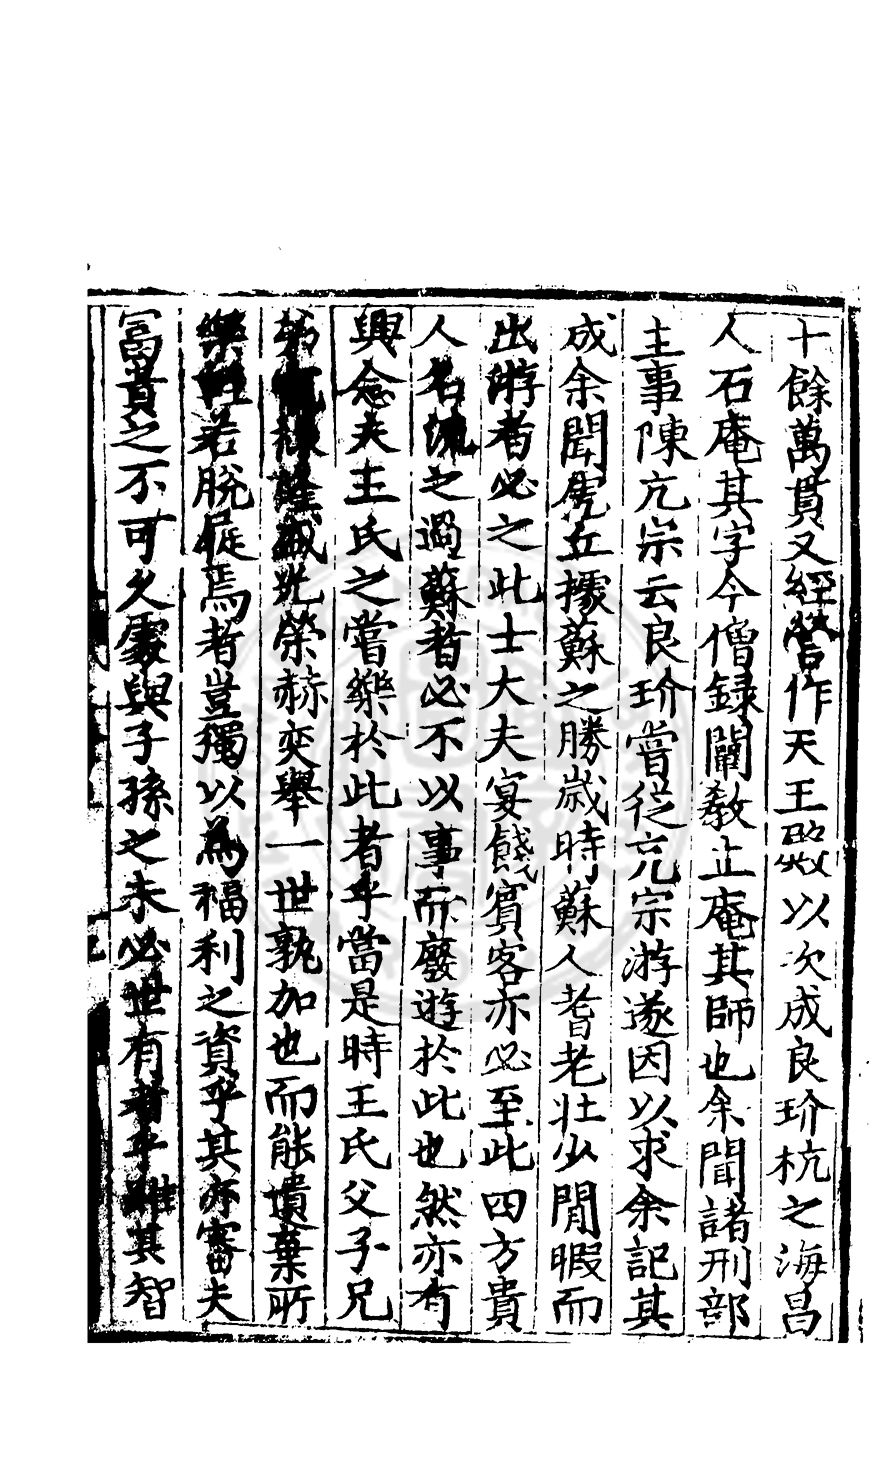 十餘萬貫又經營作天王殿以次成良玠杭之海昌
人石庵其字今僧録闡教止庵其師也余聞諸刑部
主事陳亢宗云良玠嘗從亢宗游遂因以求余記其
成余聞虎丘據蘇之勝歲時蘇人耆老壯少閒暇而
出游者必之此士大夫宴餞賓客亦必至此四方貴
人名流之過蘇者必不以事而廢遊於此也然亦有
興念夫王氏之嘗樂於此者乎當是時王氏父子兄
弟寵祿隆盛光榮赫奕舉一世孰加也而能遺棄所
樂輕若脫屣焉者豈獨以為福利之資乎其亦審夫
富貴之不可久處與子孫之未必世有者乎雖其智